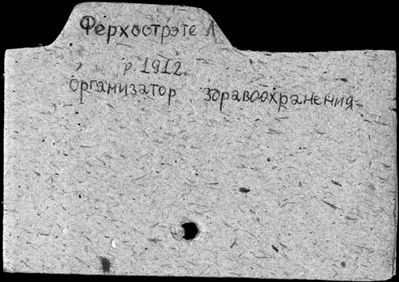 Ферхострэте Л
р 1912.
организатор здравоохранения-